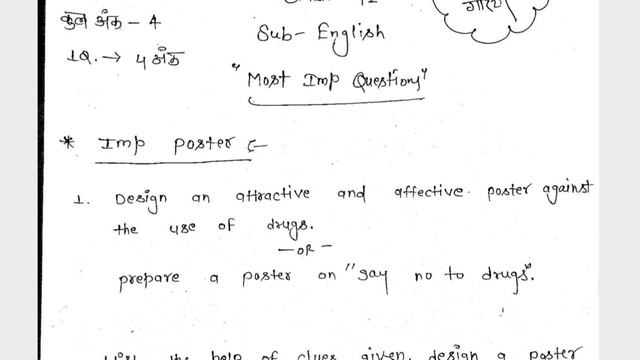 कुल अंक - 4
12
गारंटी
Sub- English
1Q. → 4 अंक
"Most Imp Questions"
* Imp poster :-
1. Design an attractive and affective poster against
the use of drugs.
- OR -
prepare a poster on "say no to drugs".
the help of clues given, design a poster